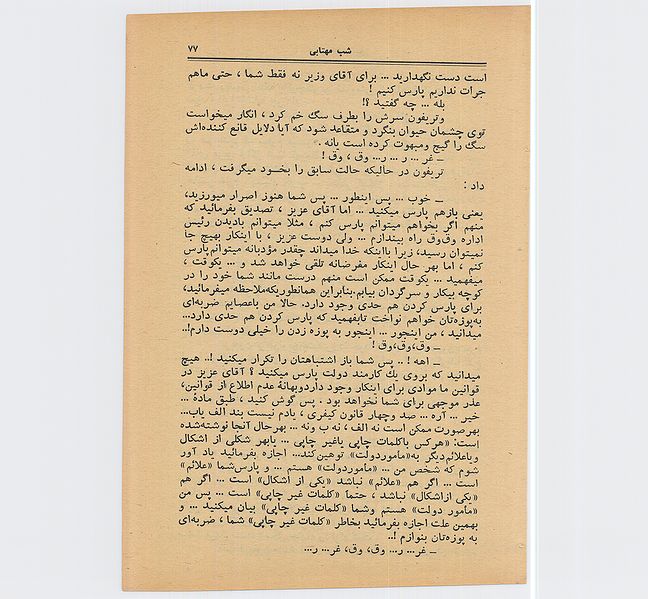 شب مهتابی
۷۷
است دست نگهدارید ... برای آقای وزیر نه فقط شما ، حتی ماهم
جرات نداریم پارس کنیم !
بله ... چه گفتید ؟!
وتریفون سرش را بطرف سگ خم کرد ، انگار میخواست
توی چشمان حیوان بنگرد و متقاعد شود که آیا دلایل قانع کننده‌اش
سگ را گیج ومبهوت کرده است یانه .
ـ غر ... ر ... ر... وق ، وق !
تریفون در حالیکه حالت سابق را بخود میگرفت ، ادامه
داد :
ـ خوب ... پس اینطور ... پس شما هنوز اصرار میورزید،
یعنی بازهم پارس میکنید ... اما آقای عزیز ، تصدیق بفرمائید که
منهم اگر بخواهم میتوانم پارس کنم ، مثلا میتوانم بادیدن رئیس
اداره وق‌وق راه بیندازم ... ولی دوست عزیز ، با اینکار بهیچ جا
نمیتوان رسید، زیرا بااینکه خدا میداند چقدر مؤدبانه میتوانم‌پارس
کنم ، اما بهر حال اینکار مغرضانه تلقی خواهد شد و ... یکوقت ،
میفهمید ... یکوقت ممکن است منهم درست مانند شما خود را در
کوچه بیکار و سرگردان بیابم.بنابراین همانطوریکه‌ملاحظه میفرمائید،
برای پارس کردن هم حدی وجود دارد. حالا من باعصایم ضربه‌ای
به‌پوزه‌تان خواهم نواخت تابفهمید که پارس کردن هم حدی دارد...
میدانید ، من اینجور ... اینجور به پوزه زدن را خیلی دوست دارم!..
ـ وق،وق،وق !
ـ اهه ! .. پس شما باز اشتباهتان را تکرار میکنید !.. هیچ
میدانید که بروی یك کارمند دولت پارس میکنید ؟ آقای عزیز در
قوانین ما موادی برای اینکار وجود داردوبهانهٔ عدم اطلاع از قوانین،
عذر موجهی برای شما نخواهد بود . پس گوش کنید ، طبق مادهٔ ...
خیر ... آره ... صد وچهار قانون کیفری ، یادم نیست بند الف یاب...
بهرصورت ممکن است نه الف ، نه ب ونه ... بهرحال آنجا نوشته‌شده
است: «هرکس باکلمات چاپی یاغیر چاپی ... یابهر شکلی از اشکال
ویاعلائم‌دیگر به«ماموردولت» توهین‌کند... اجازه بفرمائید یاد آور
شوم که شخص من ... «ماموردولت» هستم ... و پارس‌شما «علائم»
است ... اگر هم «علائم» نباشد «یکی از اشکال» است ... اگر هم
«یکی ازاشکال» نباشد ، حتماً «کلمات غیر چاپی» است ... پس من
«مامور دولت» هستم وشما «کلمات غیر چاپی» بیان میکنید ... و
بهمین علت اجازه بفرمائید بخاطر «کلمات غیر چاپی» شما ، ضربه‌ای
به پوزه‌تان بنوازم !..
ـ غر... ر... وق، وق، غر... ر...